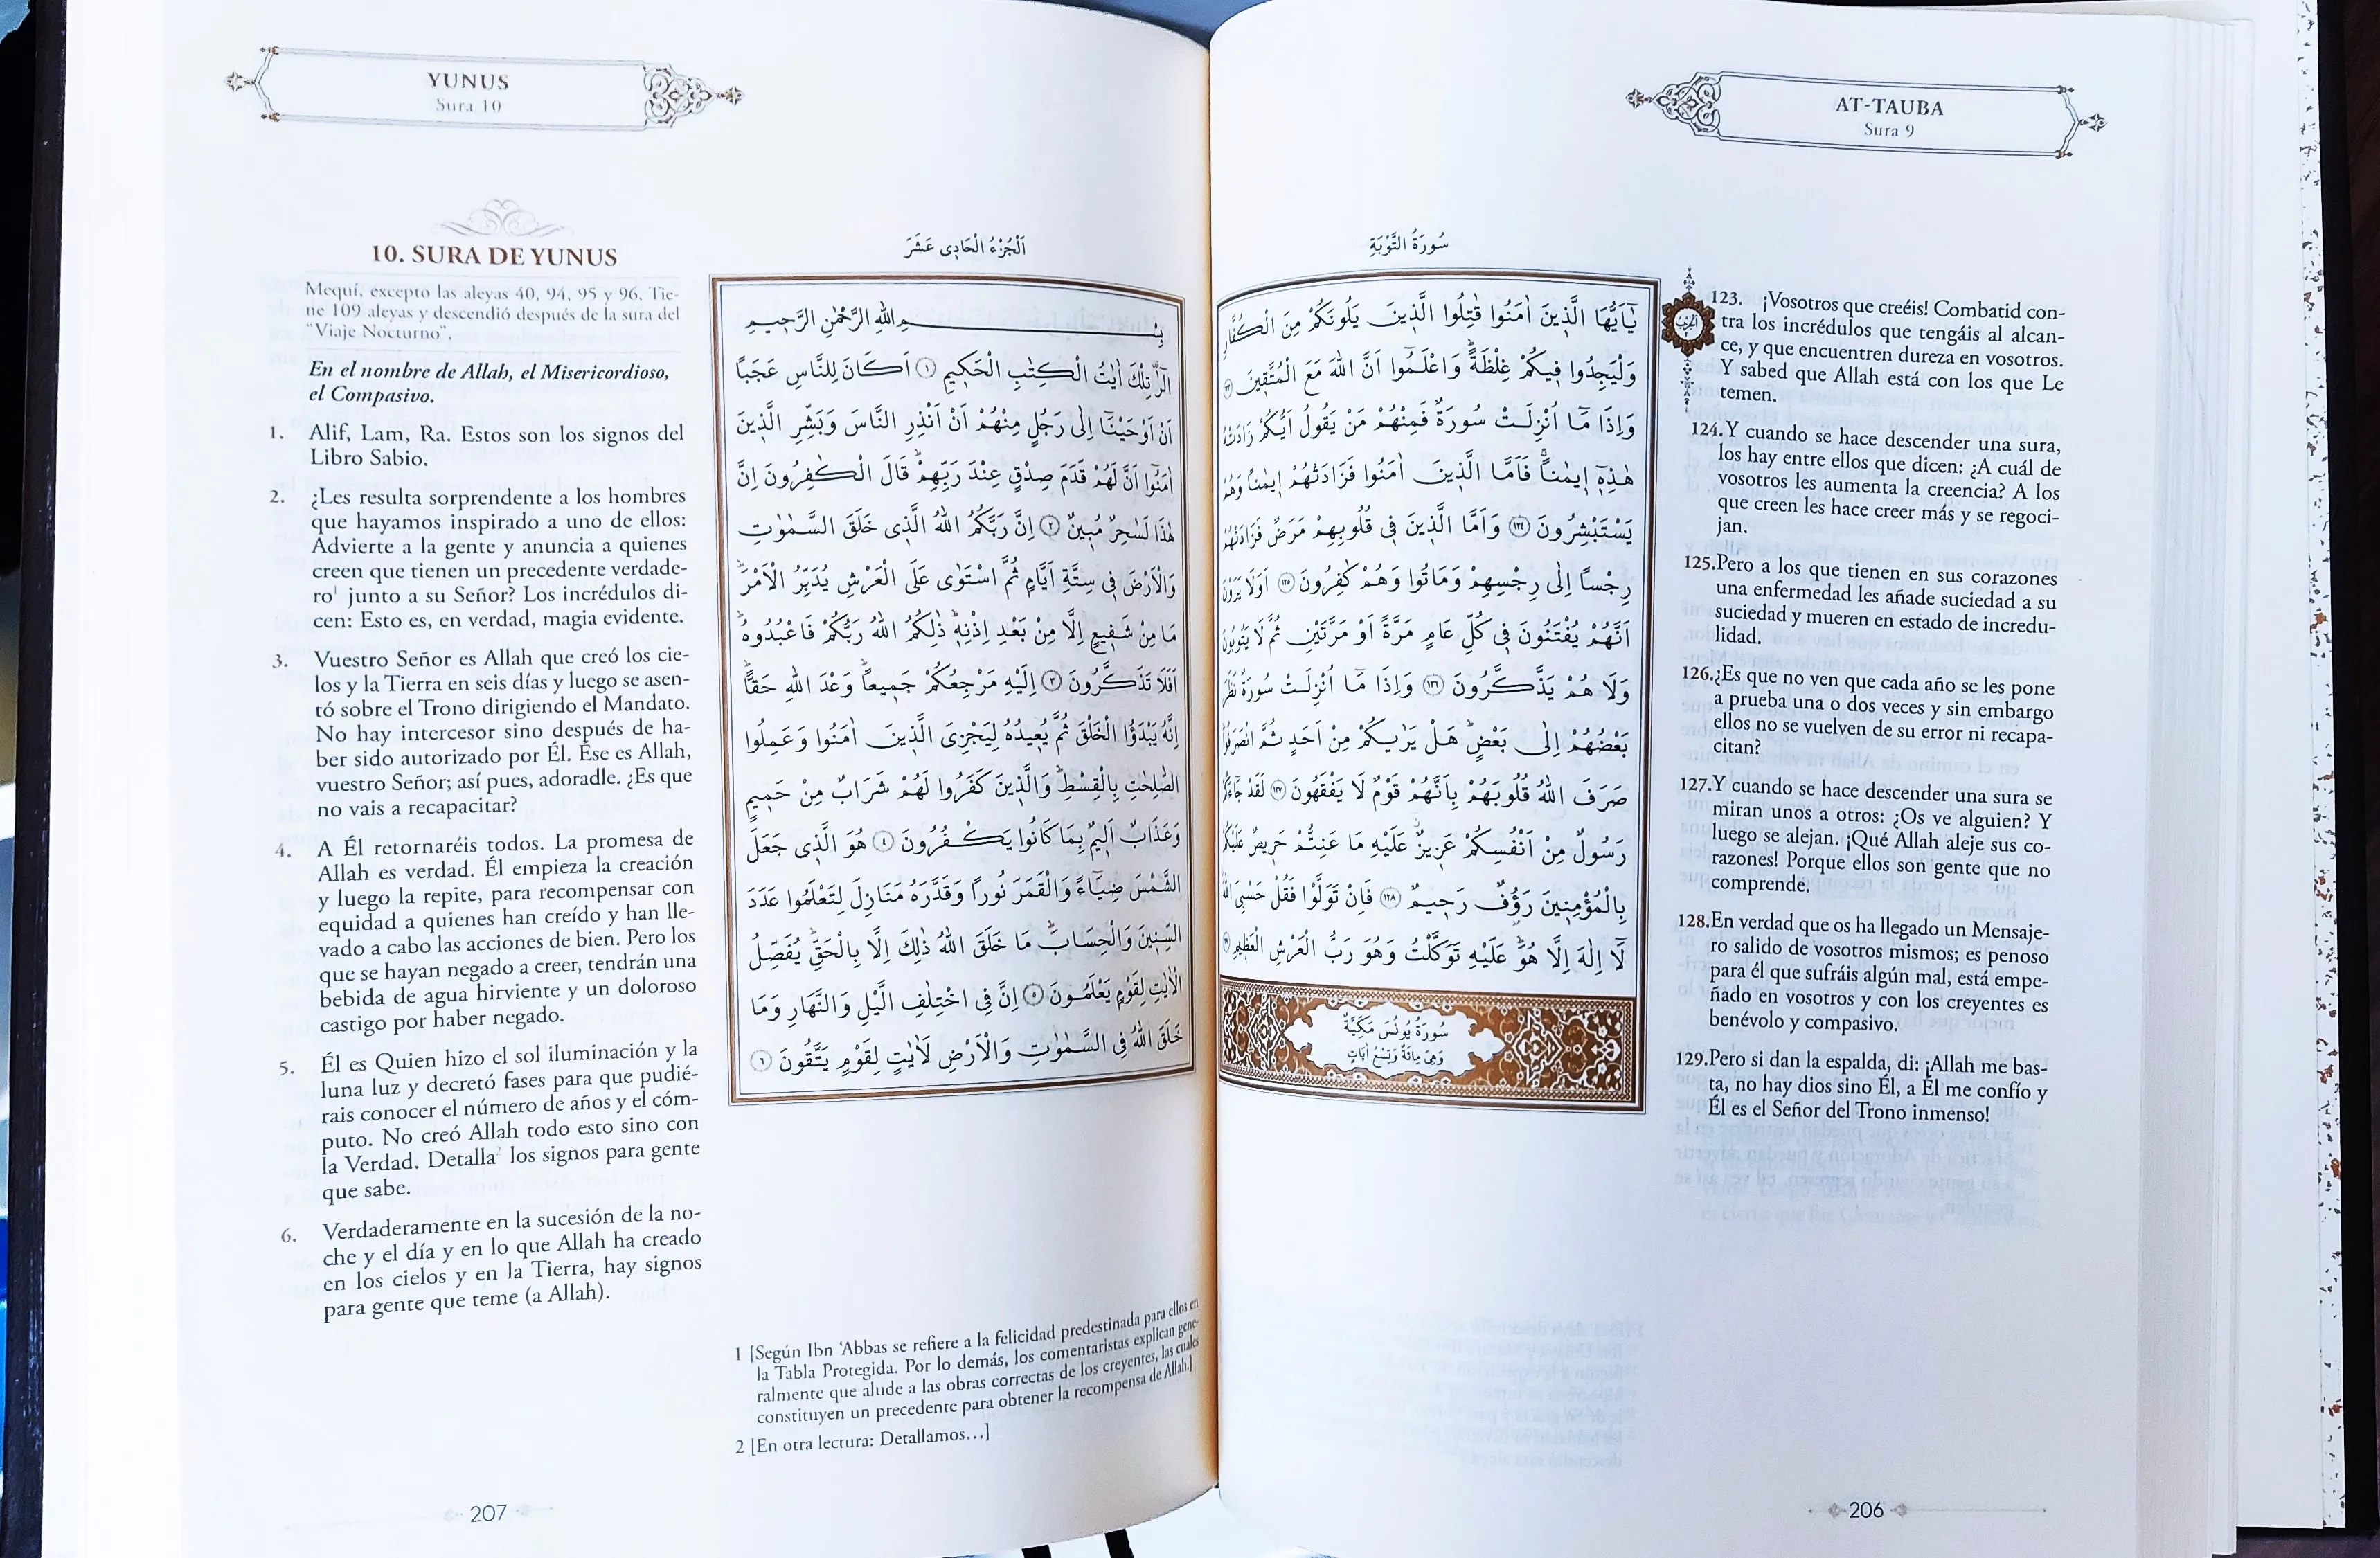 AT-TAUBA
Sura 9
سُورَةُ التَّوْبَةِ
يَٓا اَيُّهَا الَّذ۪ينَ اٰمَنُوا قَاتِلُوا الَّذ۪ينَ يَلُونَكُمْ مِنَ الْكُفَّارِ
وَلْيَجِدُوا ف۪يكُمْ غِلْظَةًۜ وَاعْلَمُٓوا اَنَّ اللّٰهَ مَعَ الْمُتَّق۪ينَ ﴿١٢٣﴾
وَاِذَا مَٓا اُنْزِلَتْ سُورَةٌ فَمِنْهُمْ مَنْ يَقُولُ اَيُّكُمْ زَادَتْهُ
هٰذِه۪ٓ ا۪يمَاناًۚ فَاَمَّا الَّذ۪ينَ اٰمَنُوا فَزَادَتْهُمْ ا۪يمَاناً وَهُمْ
يَسْتَبْشِرُونَ ﴿١٢٤﴾ وَاَمَّا الَّذ۪ينَ ف۪ي قُلُوبِهِمْ مَرَضٌ فَزَادَتْهُمْ
رِجْساً اِلٰى رِجْسِهِمْ وَمَاتُوا وَهُمْ كَافِرُونَ ﴿١٢٥﴾ اَوَلَا يَرَوْنَ
اَنَّهُمْ يُفْتَنُونَ ف۪ي كُلِّ عَامٍ مَرَّةً اَوْ مَرَّتَيْنِ ثُمَّ لَا يَتُوبُونَ
وَلَا هُمْ يَذَّكَّرُونَ ﴿١٢٦﴾ وَاِذَا مَٓا اُنْزِلَتْ سُورَةٌ نَظَرَ
بَعْضُهُمْ اِلٰى بَعْضٍۜ هَلْ يَرٰيكُمْ مِنْ اَحَدٍ ثُمَّ انْصَرَفُواۜ
صَرَفَ اللّٰهُ قُلُوبَهُمْ بِاَنَّهُمْ قَوْمٌ لَا يَفْقَهُونَ ﴿١٢٧﴾ لَقَدْ جَٓاءَكُمْ
رَسُولٌ مِنْ اَنْفُسِكُمْ عَز۪يزٌ عَلَيْهِ مَا عَنِتُّمْ حَر۪يصٌ عَلَيْكُمْ
بِالْمُؤْمِن۪ينَ رَؤُ۫فٌ رَح۪يمٌ ﴿١٢٨﴾ فَاِنْ تَوَلَّوْا فَقُلْ حَسْبِيَ اللّٰهُ
لَٓا اِلٰهَ اِلَّا هُوَۜ عَلَيْهِ تَوَكَّلْتُ وَهُوَ رَبُّ الْعَرْشِ الْعَظ۪يمِ ﴿١٢٩﴾
سُورَةُ يُونُسَ مَكِّيَّةٌ
وَهِيَ مِائَةٌ وَتِسْعُ اٰيَاتٍ
الحزب
123. ¡Vosotros que creéis! Combatid con-
tra los incrédulos que tengáis al alcan-
ce, y que encuentren dureza en vosotros.
Y sabed que Allah está con los que Le
temen.
124. Y cuando se hace descender una sura,
los hay entre ellos que dicen: ¿A cuál de
vosotros les aumenta la creencia? A los
que creen les hace creer más y se regoci-
jan.
125. Pero a los que tienen en sus corazones
una enfermedad les añade suciedad a su
suciedad y mueren en estado de incredu-
lidad.
126. ¿Es que no ven que cada año se les pone
a prueba una o dos veces y sin embargo
ellos no se vuelven de su error ni recapa-
citan?
127. Y cuando se hace descender una sura se
miran unos a otros: ¿Os ve alguien? Y
luego se alejan. ¡Qué Allah aleje sus co-
razones! Porque ellos son gente que no
comprende.
128. En verdad que os ha llegado un Mensaje-
ro salido de vosotros mismos; es penoso
para él que sufráis algún mal, está empe-
ñado en vosotros y con los creyentes es
benévolo y compasivo.
129. Pero si dan la espalda, di: ¡Allah me bas-
ta, no hay dios sino Él, a Él me confío y
Él es el Señor del Trono inmenso!
206
YUNUS
Sura 10
10. SURA DE YUNUS
Mequí, excepto las aleyas 40, 94, 95 y 96. Tie-
ne 109 aleyas y descendió después de la sura del
"Viaje Nocturno".
En el nombre de Allah, el Misericordioso,
el Compasivo.
1. Alif, Lam, Ra. Estos son los signos del
Libro Sabio.
2. ¿Les resulta sorprendente a los hombres
que hayamos inspirado a uno de ellos:
Advierte a la gente y anuncia a quienes
creen que tienen un precedente verdade-
ro¹ junto a su Señor? Los incrédulos di-
cen: Esto es, en verdad, magia evidente.
3. Vuestro Señor es Allah que creó los cie-
los y la Tierra en seis días y luego se asen-
tó sobre el Trono dirigiendo el Mandato.
No hay intercesor sino después de ha-
ber sido autorizado por Él. Ése es Allah,
vuestro Señor; así pues, adoradle. ¿Es que
no vais a recapacitar?
4. A Él retornaréis todos. La promesa de
Allah es verdad. Él empieza la creación
y luego la repite, para recompensar con
equidad a quienes han creído y han lle-
vado a cabo las acciones de bien. Pero los
que se hayan negado a creer, tendrán una
bebida de agua hirviente y un doloroso
castigo por haber negado.
5. Él es Quien hizo el sol iluminación y la
luna luz y decretó fases para que pudié-
rais conocer el número de años y el cóm-
puto. No creó Allah todo esto sino con
la Verdad. Detalla² los signos para gente
que sabe.
6. Verdaderamente en la sucesión de la no-
che y el día y en lo que Allah ha creado
en los cielos y en la Tierra, hay signos
para gente que teme (a Allah).
اَلْجُزْءُ الْحَاد۪ي عَشَرَ
بِسْمِ اللّٰهِ الرَّحْمٰنِ الرَّح۪يمِ
الٓرٰ۠ تِلْكَ اٰيَاتُ الْكِتَابِ الْحَك۪يمِ ﴿١﴾ اَكَانَ لِلنَّاسِ عَجَباً
اَنْ اَوْحَيْنَٓا اِلٰى رَجُلٍ مِنْهُمْ اَنْ اَنْذِرِ النَّاسَ وَبَشِّرِ الَّذ۪ينَ
اٰمَنُٓوا اَنَّ لَهُمْ قَدَمَ صِدْقٍ عِنْدَ رَبِّهِمْۜ قَالَ الْكَافِرُونَ اِنَّ
هٰذَا لَسَاحِرٌ مُب۪ينٌ ﴿٢﴾ اِنَّ رَبَّكُمُ اللّٰهُ الَّذ۪ي خَلَقَ السَّمٰوَاتِ
وَالْاَرْضَ ف۪ي سِتَّةِ اَيَّامٍ ثُمَّ اسْتَوٰى عَلَى الْعَرْشِ يُدَبِّرُ الْاَمْرَۜ
مَا مِنْ شَف۪يعٍ اِلَّا مِنْ بَعْدِ اِذْنِه۪ۜ ذٰلِكُمُ اللّٰهُ رَبُّكُمْ فَاعْبُدُوهُۜ
اَفَلَا تَذَكَّرُونَ ﴿٣﴾ اِلَيْهِ مَرْجِعُكُمْ جَم۪يعاًۜ وَعْدَ اللّٰهِ حَقاًّۜ
اِنَّهُ يَبْدَؤُا الْخَلْقَ ثُمَّ يُع۪يدُهُ لِيَجْزِيَ الَّذ۪ينَ اٰمَنُوا وَعَمِلُوا
الصَّالِحَاتِ بِالْقِسْطِۜ وَالَّذ۪ينَ كَفَرُوا لَهُمْ شَرَابٌ مِنْ حَم۪يمٍ
وَعَذَابٌ اَل۪يمٌ بِمَا كَانُوا يَكْفُرُونَ ﴿٤﴾ هُوَ الَّذ۪ي جَعَلَ
الشَّمْسَ ضِيَٓاءً وَالْقَمَرَ نُوراً وَقَدَّرَهُ مَنَازِلَ لِتَعْلَمُوا عَدَدَ
السِّن۪ينَ وَالْحِسَابَۜ مَا خَلَقَ اللّٰهُ ذٰلِكَ اِلَّا بِالْحَقِّۚ يُفَصِّلُ
الْاٰيَاتِ لِقَوْمٍ يَعْلَمُونَ ﴿٥﴾ اِنَّ فِي اخْتِلَافِ الَّيْلِ وَالنَّهَارِ وَمَا
خَلَقَ اللّٰهُ فِي السَّمٰوَاتِ وَالْاَرْضِ لَاٰيَاتٍ لِقَوْمٍ يَتَّقُونَ ﴿٦﴾
1 [Según Ibn 'Abbas se refiere a la felicidad predestinada para ellos en
la Tabla Protegida. Por lo demás, los comentaristas explican gene-
ralmente que alude a las obras correctas de los creyentes, las cuales
constituyen un precedente para obtener la recompensa de Allah.]
2 [En otra lectura: Detallamos…]
207